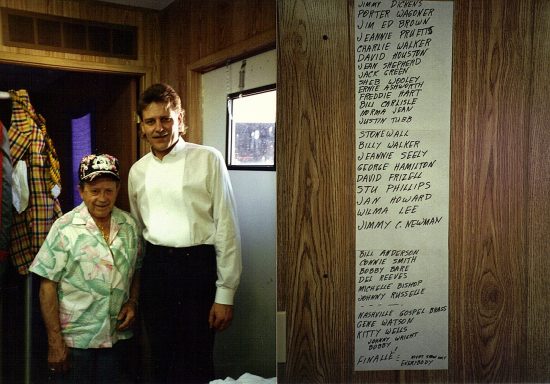 JIMMY DICKENS
PORTER WAGONER
JIM ED BROWN
JEANNIE PRUETTS
CHARLIE WALKER
DAVID HOUSTON
JEAN SHEPHERD
JACK GREEN
SHEB WOOLEY
ERNIE ASHWORTH
FREDDIE HART
BILL CARLISLE
NORMA JEAN
JUSTIN TUBB
STONEWALL
BILLY WALKER
JEANNIE SEELY
GEORGE HAMILTON
DAVID FRIZELL
STU PHILLIPS
JAN HOWARD
WILMA LEE
JIMMY C. NEWMAN
BILL ANDERSON
CONNIE SMITH
BOBBY BARE
DEL REEVES
MICHELLE BISHOP
JOHNNY RUSSELLE
NASHVILLE GOSPEL BRASS
GENE WATSON
KITTY WELLS
JOHNNY WRIGHT
BOBBY "
FINALLE:
EVERYBODY